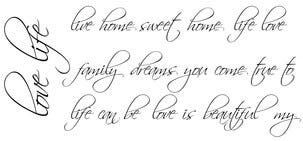 love life
live home sweet home life love
family dreams you come true to
life can be love is beautiful my